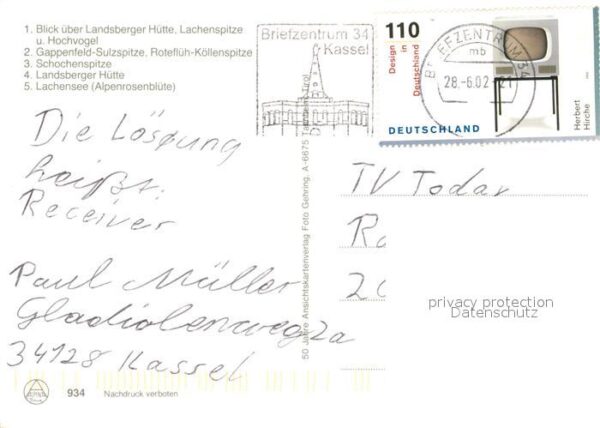 1. Blick über Landsberger Hütte, Lachenspitze
u. Hochvogel
2. Gappenfeld-Sulzspitze, Roteflüh-Köllenspitze
3. Schochenspitze
4. Landsberger Hütte
5. Lachensee (Alpenrosenblüte)
Briefzentrum 34
Kassel
110
Design in
Deutschland
DEUTSCHLAND
Herbert
Hirche
BRIEFZENTRUM 34
mb
28.-6.02.-21
Die Lösung
heißt:
Receiver
Paul Müller
Gladiolenweg 2a
34128 Kassel
TV Today
Ra
20
privacy protection
Datenschutz
50 Jahre Ansichtskartenverlag Foto Gehring, A-6675 Tannheim-Tirol
934 Nachdruck verboten